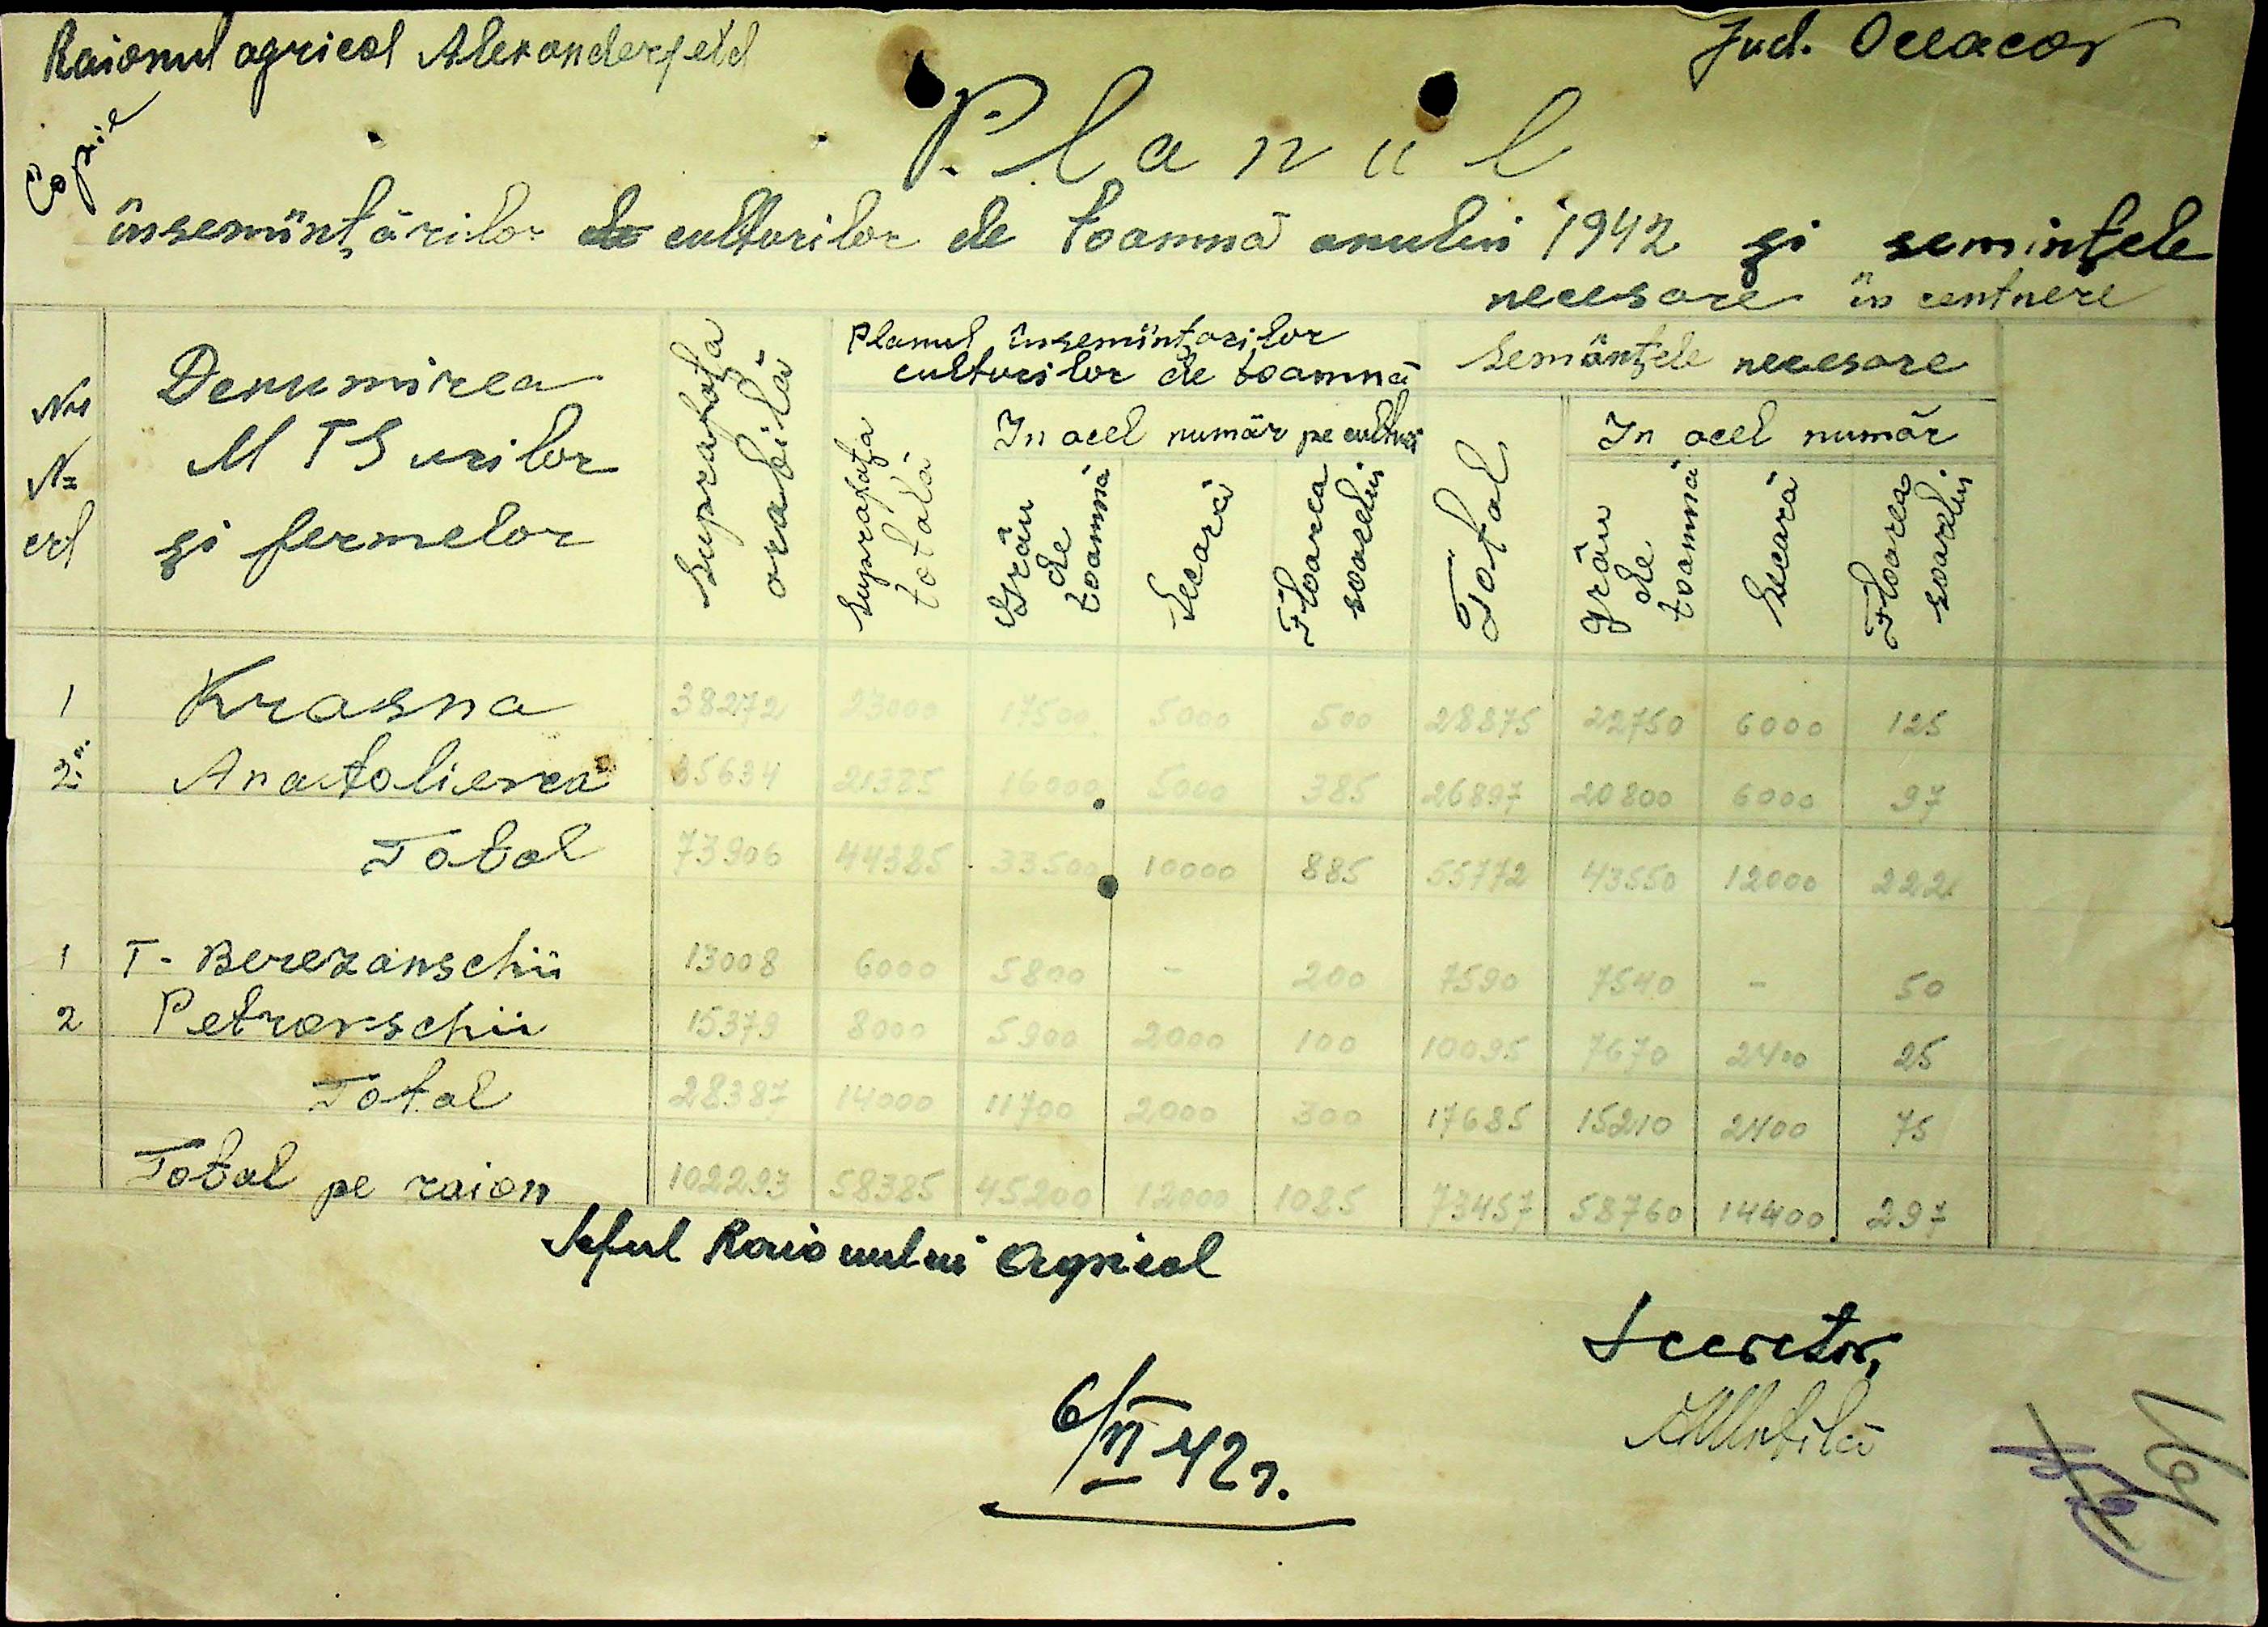 Raionul agricol Alexanderfeld
Jud. Oceacov
Copie
Planul
însemînțărilor de culturilor de toamnă anului 1942 și semințele
necesare în centnere
Nr
N=
crt
Denumirea
M T S urilor
și fermelor
Suprafața
arabilă
Planul însemînțărilor
culturilor de toamnă
Semânțele necesare
Suprafața
totală
In acel număr pe culturi
Grâu
de
toamnă
Secară
Floarea
soarelui
Total
In acel număr
grâu
de
toamnă
Secară
Floarea
soarelui
1 Krasna 38272 23000 17500 5000 500 28875 22750 6000 125
2 Anatolievca 35634 21385 16000 5000 385 26897 20800 6000 97
Total 73906 44385 33500 10000 885 55772 43550 12000 222
1 T- Berezanschii 13008 6000 5800 - 200 7590 7540 - 50
2 Petrovschii 15379 8000 5900 2000 100 10095 7670 2400 25
Total 28387 14000 11700 2000 300 17685 15210 2400 75
Total pe raion 102293 58385 45200 12000 1085 73457 58760 14400 297
Șeful Raionului Agricol
Secretor,
6/VI-42 г.